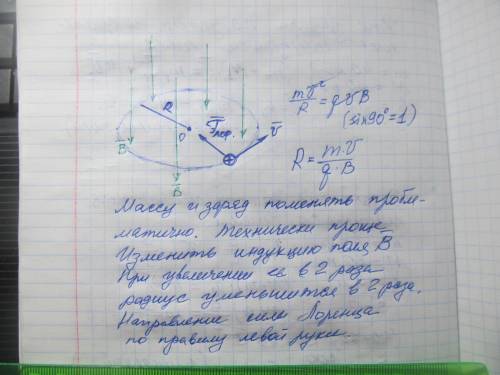 R
mV̅²/R = qVB
F̅лор.
V̅
(sin90°=1)
O
B̅
R = m·V/q·B
B̅
Массу и заряд поменять пробле-
матично. Технически проще
Изменить индукцию поля B
При увеличении её в 2 раза
радиус уменьшится в 2 раза.
Направление силы Лоренца
по правилу левой руки.